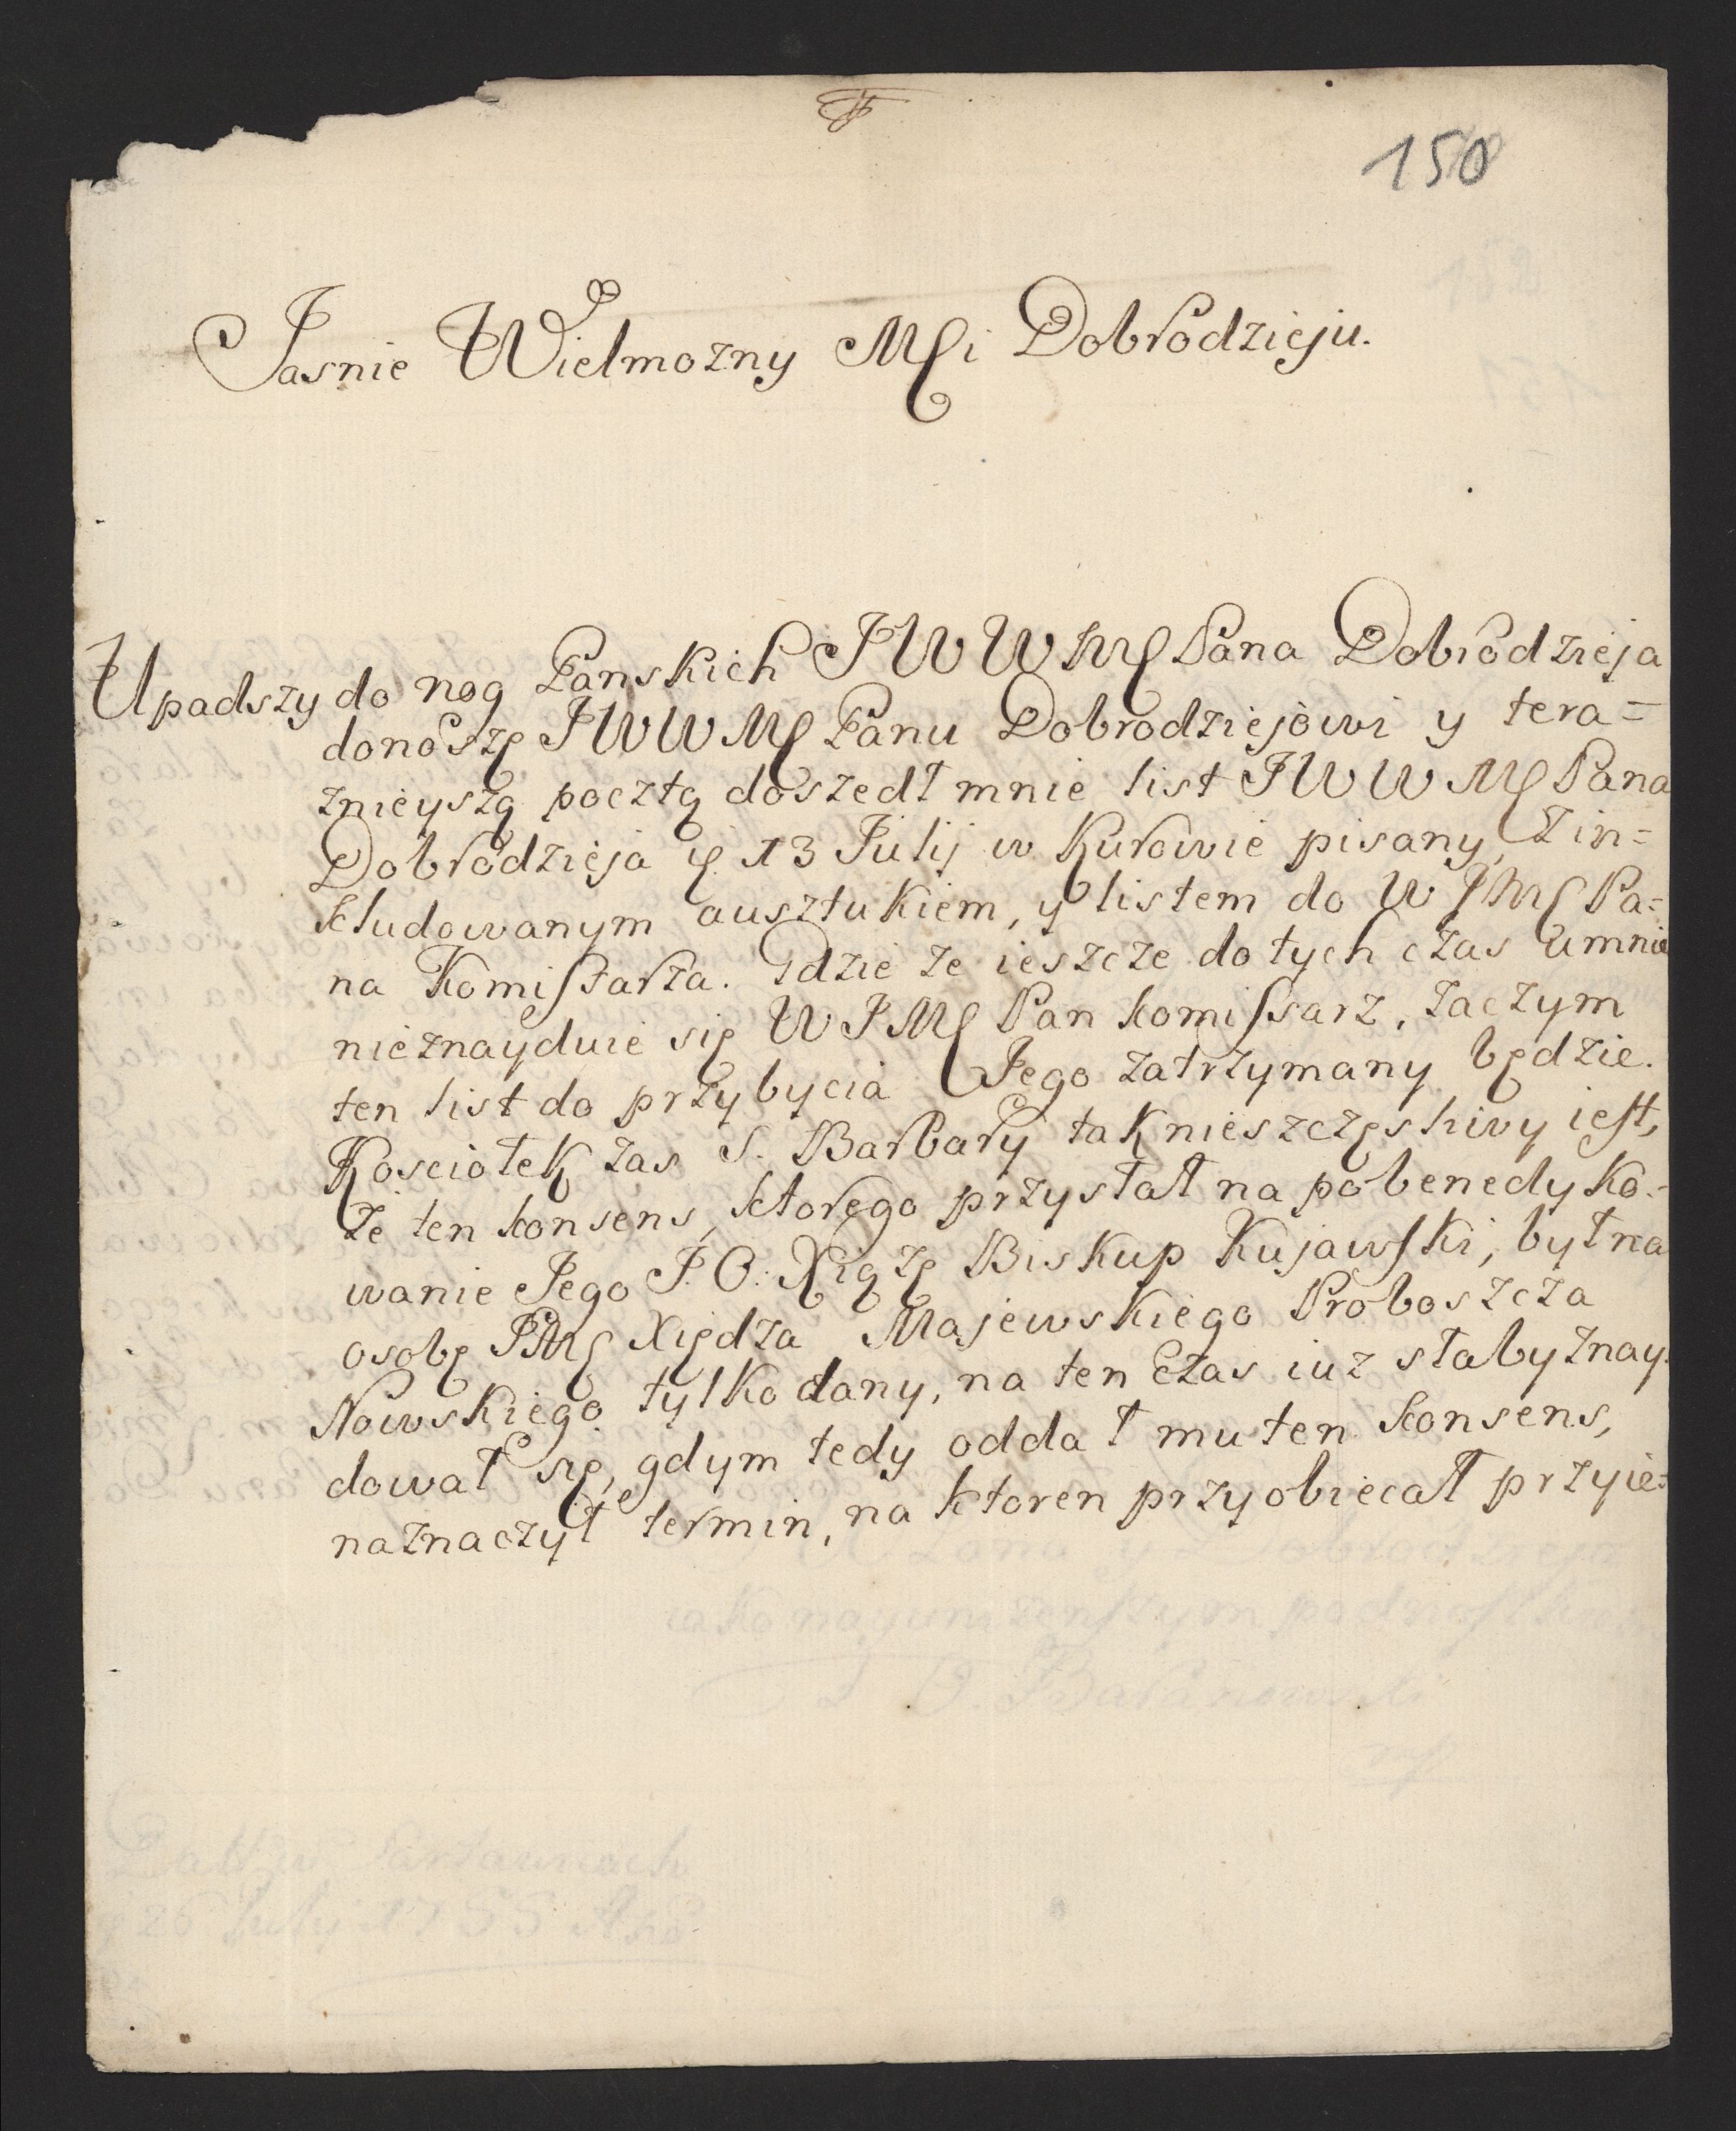 150
Jasnie Wielmozny Mci Dobrodzieju.
Upadszy do nog Panskich JWWMC Pana Dobrodzieja
donoszę JWWMC Panu Dobrodziejowi y tera=
znieyszą pocztą doszedł mnie list JWWMC Pana
Dobrodzieja d. 13 Julij w Kurowie pisany, z in=
kludowanym ausztukiem, y listem do WJMC Pa=
na Komissarza. Gdzie ze ieszcze do tych czas umnie
nieznayduie się WJMC Pan komissarz, zaczym
ten list do przybycia Jego zatrzymany będzie.
Kosciołek zas S. Barbary tak nieszczęsliwy iest,
ze ten konsens, ktorego przystał na pobenedyko=
wanie Jego J. O. Xiąże Biskup Kujawski, był na
osobę JMC Xiędza Majewskiego Proboszcza
Nowskiego tylko dany, na ten czas iuz słaby znay=
dował się, gdym tedy oddał mu ten konsens,
naznaczył termin, na ktoren przyobiecał przyie=